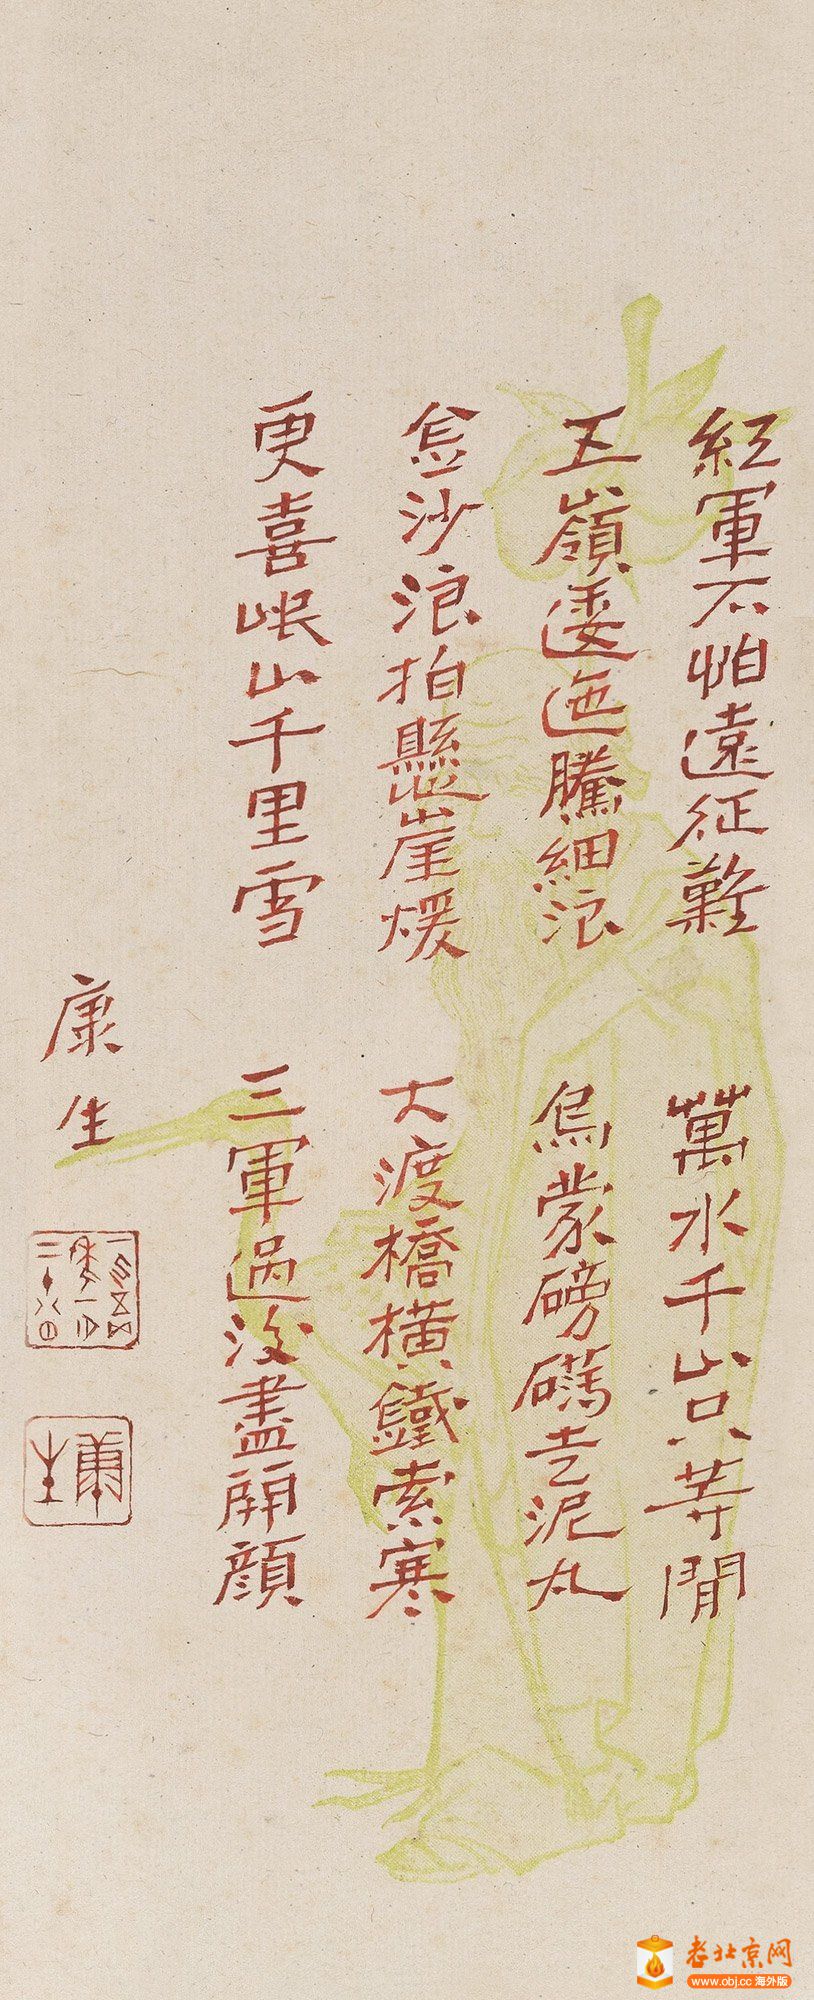 紅軍不怕遠征難 萬水千山只等閒
五嶺逶迤騰細浪 烏蒙磅礴走泥丸
金沙浪拍懸崖煖 大渡橋橫鐵索寒
更喜岷山千里雪 三軍過後盡開顏
康生
康生
老北京网
www.obj.cc 海外版